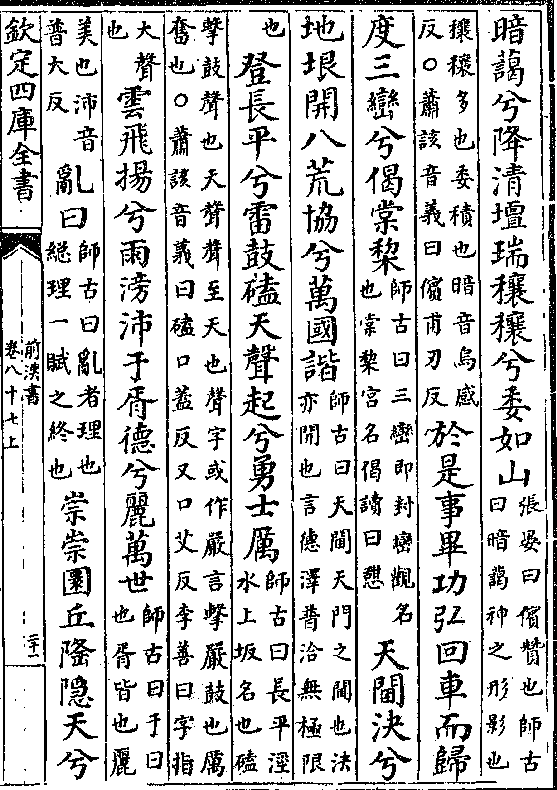 暗藹兮降清壇瑞穰穰兮委如山張晏曰儐贊也師古曰暗藹神之形影也
穰穰多也委積也暗音烏感反○蕭該音義曰儐甫刃反於是事畢功弘回車而歸
度三巒兮偈棠棃師古曰三巒即封巒觀名也棠棃宮名偈讀曰憇天閫決兮
地垠開八荒協兮萬國諧師古曰天閫天門之閫也決亦開也言德澤普洽無極限
也登長平兮雷鼓磕天聲起兮勇士厲師古曰長平涇水上坂名也磕
擊鼓聲也天聲聲至天也聲字或作嚴言擊嚴鼓也厲奮也○蕭該音義曰磕口蓋反又口艾反李善曰字指
大聲也雲飛揚兮雨滂沛于胥德兮麗萬世師古曰于曰也胥皆也麗
美也沛音普大反亂曰師古曰亂者理也總理一賦之終也崇崇圜丘隆隱天兮
欽定四庫全書
前漢書
卷八十七上
二十一